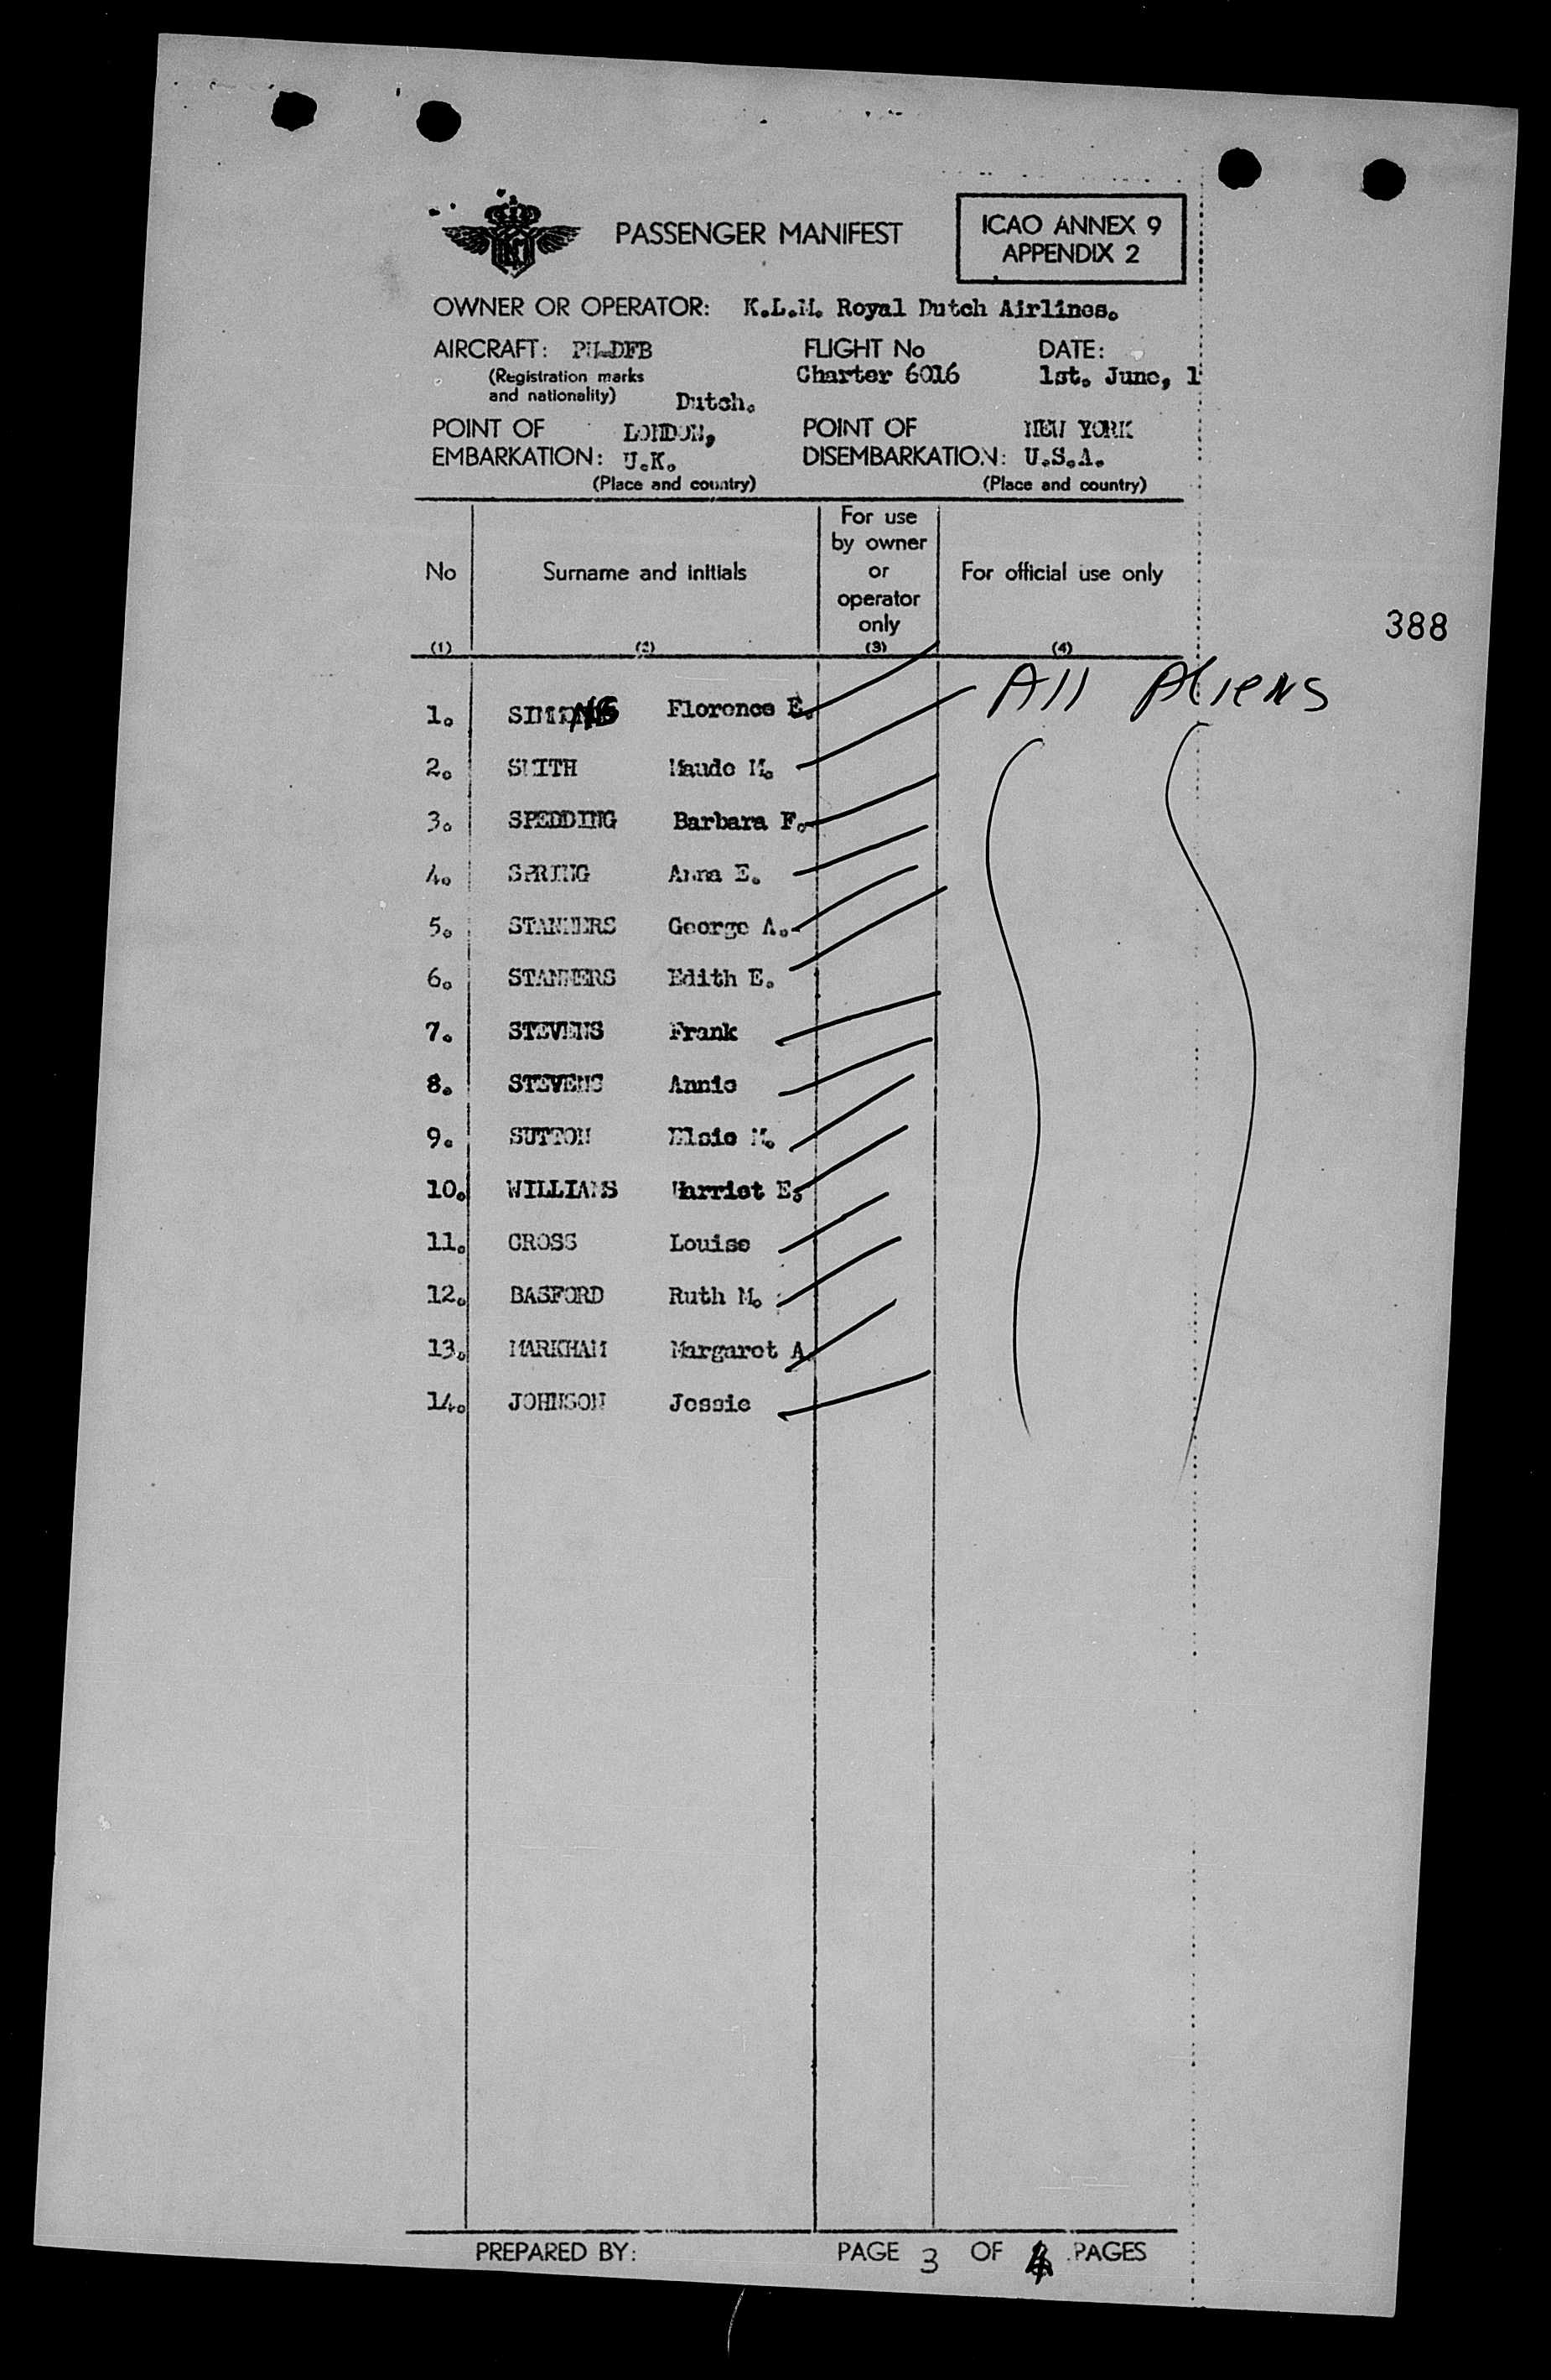 PASSENGER MANIFEST
ICAO ANNEX 9
APPENDIX 2
OWNER OR OPERATOR: K.L.M. Royal Dutch Airlines.
AIRCRAFT: PH-DFB FLIGHT No DATE:
(Registration marks Charter 6016 1st. June, 1
and nationality) Dutch.
POINT OF LONDON, POINT OF NEW YORK
EMBARKATION: U.K. DISEMBARKATION: U.S.A.
(Place and country) (Place and country)
No Surname and initials For use by owner or operator only For official use only
(1) (2) (3) (4)
388
All Aliens
1. Florence E.
2. SMITH Maude M.
3. SPEDDING Barbara F.
4. SPRING Anna E.
5. STANNERS George A.
6. STANNERS Edith E.
7. STEVENS Frank
8. STEVENS Annie
9. SUTTON Elsie M.
10. WILLIAMS Harriet E.
11. CROSS Louise
12. BASFORD Ruth M.
13. MARKHAM Margaret A.
14. JOHNSON Jessie
PREPARED BY: PAGE 3 OF 4 PAGES